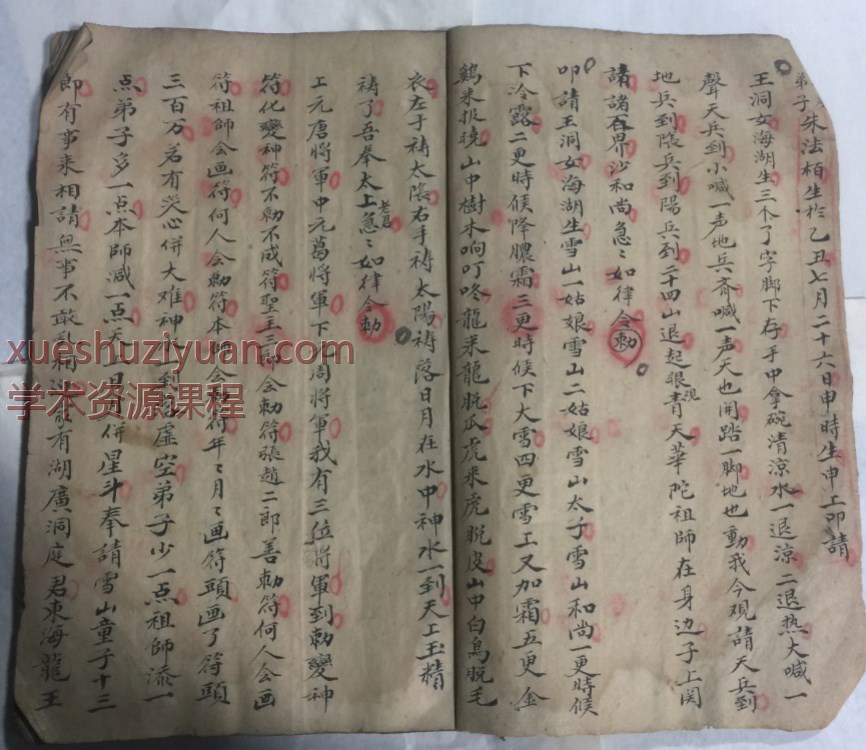 弟子朱法栢生於乙丑七月二十六日申時生申上叩請
王洞女海湖生三个了字脚下存手中拿碗清涼水一退涼二退热大喊一
聲天兵到小喊一声地兵齐喊一声天也開踏一脚地也動我今观請天兵到
地兵到陰兵到陽兵到二十四山退起眼观青天華陀祖師在身边子上関
請諸百界沙和尚急〻如律令勅
叩請王洞女海湖生雪山一姑娘雪山二姑娘雪山太子雪山和尚一更時候
下冷露二更時候降膿霜三更時候下大雪四更雪上又加霜五更金
鷄来报晓山中樹木响叮咚龍来龍脱瓜虎来虎脱皮山中白鳥脱毛
衣左手祷太陰右手祷太陽祷落日月在水中神水一到天上玉精
祷了吾奉太上老君急〻如律令勅
上元唐将軍中元葛将軍下元周将軍我有三位将軍到勅變神
符化變神符不勅不成符聖王三郎会勅符張趙二郎善勅符何人会画
符祖師会画符何人会勅符本師会勅符年〻月〻画符頭画了符頭
三百万若有災心併大难神水到虚空弟子少一点祖師添一
点弟子多一点本師减一点天上日月併星斗奉請雪山童子十三
即有事来相請無事不敢乱有湖廣洞庭君東海龍王
xueshuziyuan.com
学术资源课程